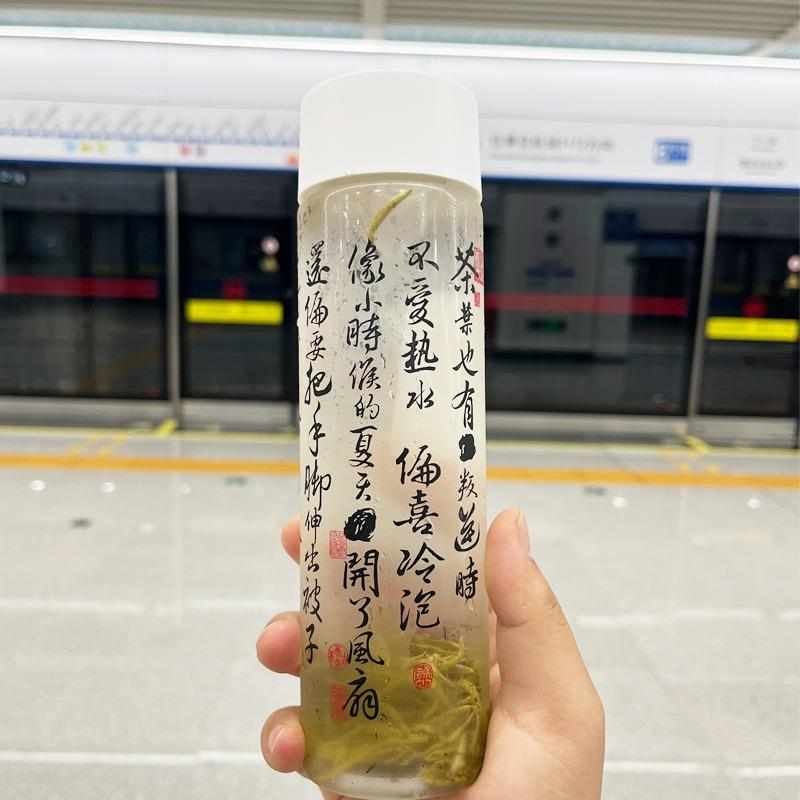 茶葉也有叛逆時
不愛熱水 偏喜冷泡
像小時候的夏天開了風扇
還偏要把手脚伸出被子